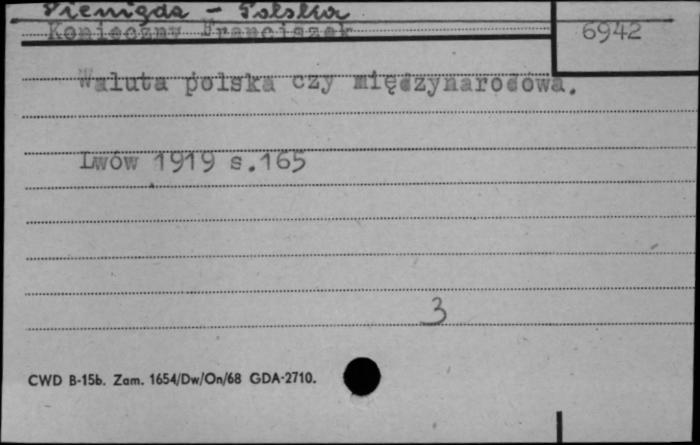 Pieniądz - Polska
Konieczny Franciszek
6942
Waluta polska czy międzynarodowa.
Lwów 1919 s.165
3
CWD B-15b. Zam. 1654/Dw/On/68 GDA-2710.